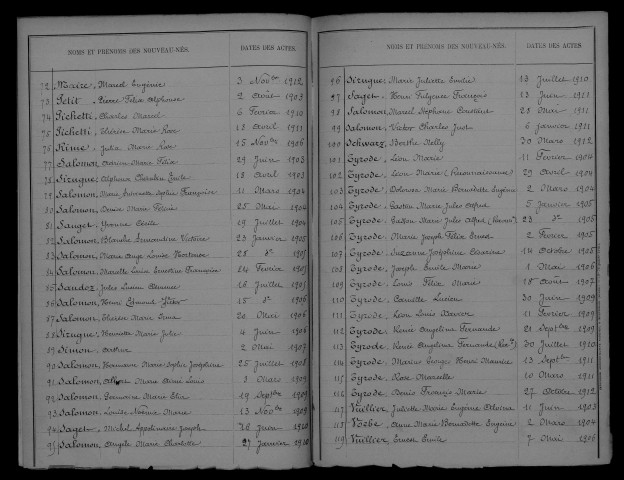 NOMS ET PRÉNOMS DES NOUVEAU-NÉS. DATES DES ACTES.
72 Maire, Marcel Eugénie 3 Novbre 1912
73 Petit, Pierre Félix Alphonse 2 Août 1903
74 Pichetti, Charles Marcel 6 Février 1910
75 Pichetti, Thérèse Marie Rose 18 Avril 1911
76 Rime, Julia Marie Rose 15 Novbre 1906
77 Salomon, Marie Félix 29 Juin 1903
78 Sizugue, Alphonse 18 Avril 1903
79 Salomon, Marie Sophie Françoise 11 Mars 1904
80 Salomon, Denise Marie 25 Mai 1904
81 Sauget, Yvonne Cécile 19 Juillet 1904
82 Salomon, Blanche Victoire 23 Janvier 1905
83 Salomon, Marie Ange Louise Hortense 28 d° 1905
84 Salomon, Marcelle Lucie Françoise 24 Février 1905
85 Sandoz, Jules Lucien 16 Juillet 1905
86 Salomon, Henri Edmond 15 d° 1906
87 Salomon, Thérèse Marie 20 Mai 1906
88 Sizugue, Henriette Marie Julie 4 Juin 1906
89 Simon, Arthur 2 Mai 1907
90 Salomon, Marie Sophie Joséphine 25 Juillet 1908
91 Salomon, Marie Aimé Louis 3 Mars 1909
92 Salomon, Germaine Marie 19 Septbre 1909
93 Salomon, Louise Noémie Marie 13 Novbre 1909
94 Saget, Michel Appolinaire Joseph 26 Juin 1910
95 Salomon, Angèle Marie Charlotte 27 Janvier 1910
NOMS ET PRÉNOMS DES NOUVEAU-NÉS. DATES DES ACTES.
96 Sizugue, Marie Juliette Emilie 13 Juillet 1910
97 Saget, Henri Fulgence François 13 Juin 1911
98 Salomon, Marcel Stéphane Constant 28 Mai 1911
99 Salomon, Victor Charles Just 6 Janvier 1911
100 Schwarz, Berthe Nelly 30 Mars 1912
101 Tyrode, Léon Marie 11 Février 1904
102 Tyrode, Léon Marie (Reconnaissance) 29 Avril 1904
103 Tyrode, Marie Bernadette Eugénie 2 Mars 1904
104 Tyrode, Gaston Marie Jules Alfred 5 Janvier 1905
105 Tyrode, Gaston Marie Jules Alfred 23 d° 1905
106 Tyrode, Marie Joseph Félix Ernest 2 Février 1905
107 Tyrode, Suzanne Joséphine 14 Octobre 1905
108 Tyrode, Joseph Emile Marie 1 Mai 1906
109 Tyrode, Louis Félix Marie 18 Août 1907
110 Tyrode, Camille Lucien 30 Juin 1909
111 Tyrode, Léon Louis 11 Février 1909
112 Tyrode, René Angelina Fernande 21 Septbre 1909
113 Tyrode, René Angelina Fernande 30 Juillet 1910
114 Tyrode, Marius Georges Henri Maurice 13 Septbre 1911
115 Tyrode, Rose Marcelle 10 Mars 1911
116 Tyrode, Denis François Marie 27 Octobre 1912
117 Vuillier, Juliette Marie Eugénie 11 Juin 1903
118 Anne Marie Bernadette Eugénie 2 Mars 1904
119 Vuillier, Ernest Emile 7 Mai 1906